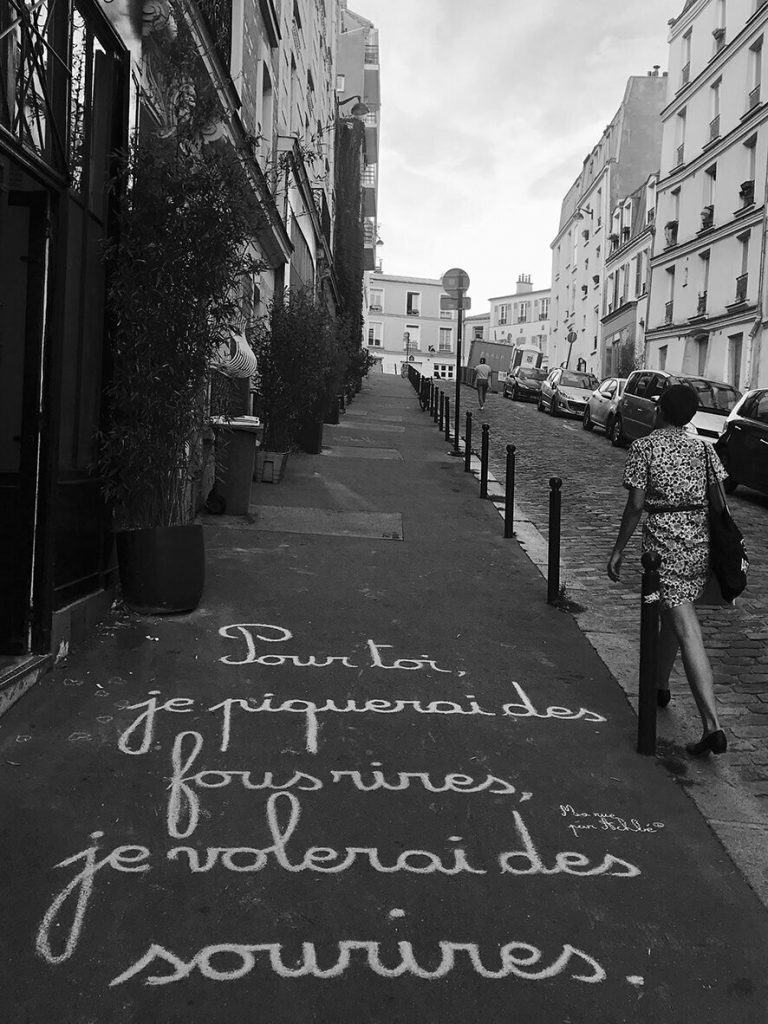 Pour toi,
je piquerai des
fous rires,
je volerai des
sourires.
Ma rue
par Achbé